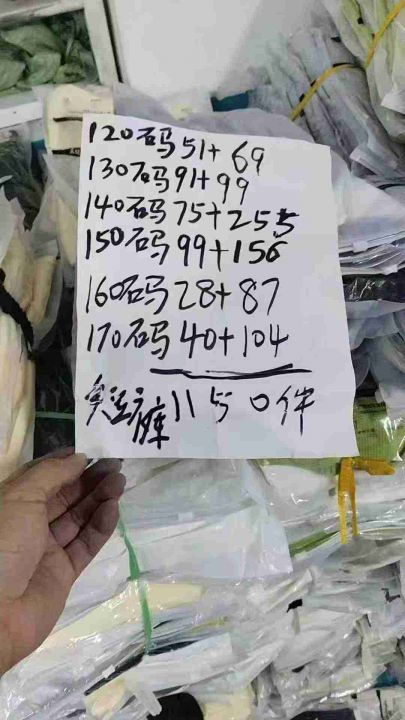 120码51+69
130码91+99
140码75+255
150码99+156
160码28+87
170码40+104
1150件